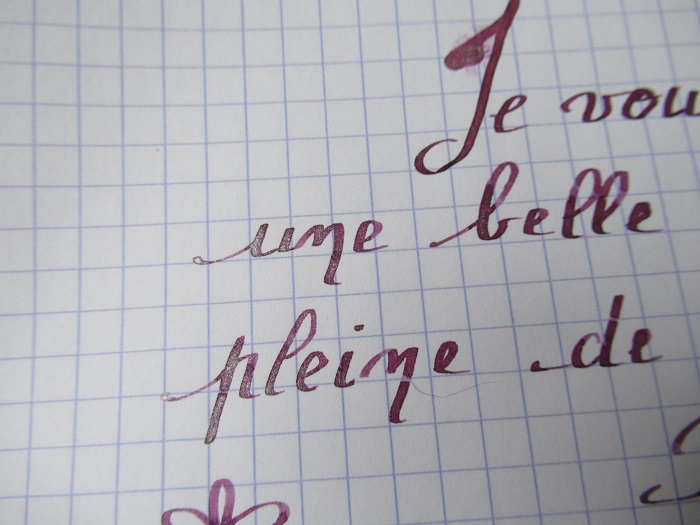 Je vou
une belle
pleine de